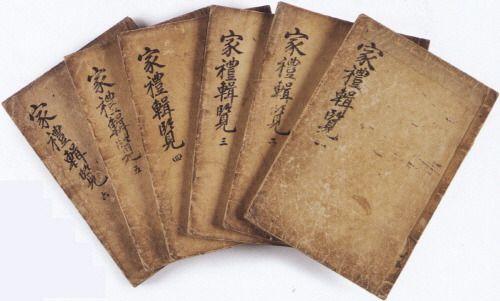 家禮輯覽 一
家禮輯覽 二
家禮輯覽 三
家禮輯覽 四
家禮輯覽 五
家禮輯覽 六